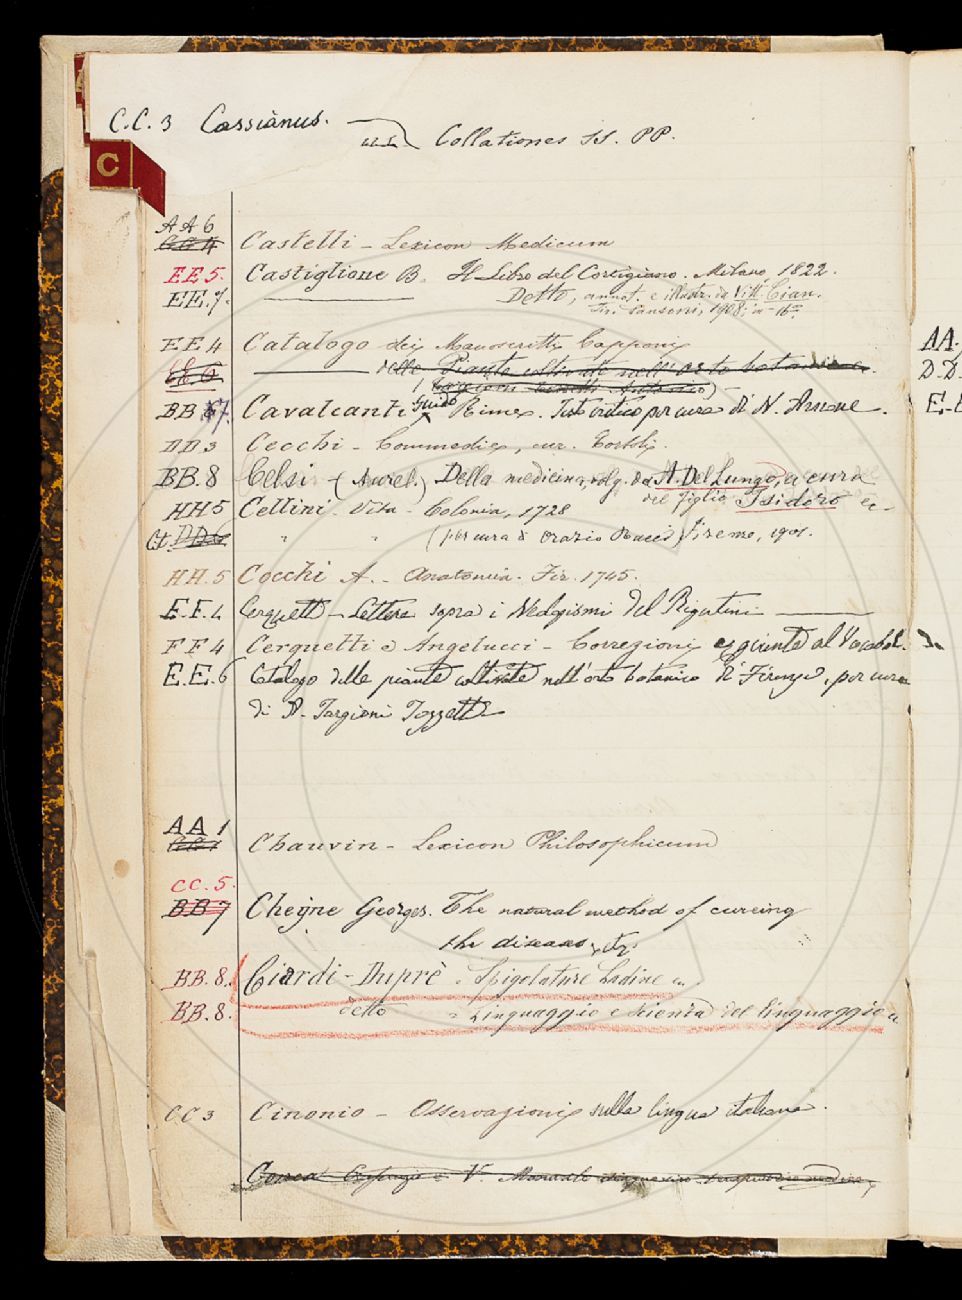 C.C. 3 Cassianus.
Collationes SS. PP.
C
AA 6
CC 4 Castelli - Lexicon Medicum
EE 5. Castiglione B. Il Libro del Cortigiano. Milano 1822.
EE. 7. Detto, annot. e illustr. da Vitt. Cian.
Fir. Sansoni, 1908; in-16°.
EE 4 Catalogo dei Manoscritti Capponi
EE 6 delle Piante coltivate nell'orto botanico
BB 7. Cavalcanti Guido Rime. Testo critico per cura di N. Arnone.
DD 3 Cecchi - Commedie, cur.
BB. 8 Celsi - (Aurel.) Della medicina, volg. da A. Del Lungo, a cura
del figlio Isidoro
HH 5 Cellini. Vita - Colonia, 1728
Ct. DD 6 " " (per cura di Orazio Bacci) Firenze, 1901.
HH. 5 Cocchi A. - Anatomia. Fir. 1745.
E.F. Cerquetti - Lettere sopra i Neologismi del Rigutini
FF 4 Cerquetti e Angelucci - Correzioni e giunte al Vocabol.
E.E. 6 Catalogo delle piante coltivate nell'orto botanico di Firenze, per cura
di A. Targioni Tozzetti
AA 1
CC 1 Chauvin - Lexicon Philosophicum
CC. 5.
BB 7 Cheyne Georges. The natural method of cureing
the diseases, etc.
BB. 8. Ciardi - Dupré - Spigolature Ladine
BB. 8. detto - Linguaggio e scienza del linguaggio
CC 3 Cinonio - Osservazioni sulla lingua italiana.
V. Manuale
AA.
D.D.
E.E